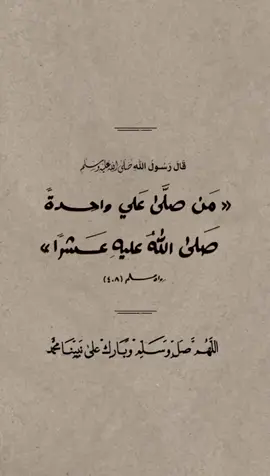 قَالَ رَسُولُ اللَّهِ صَلَّى اللَّهُ عَلَيْهِ وَسَلَّمَ
« مَن صَلَّىٰ عَلَي واحدةً
صَلىٰ اللَّهُ عليهِ عَـشرًا »
رواه مسلم (٤٠٨)
اللَّهُمَّ صَلِّ وَسَلِّمْ وَبَارِكْ عَلىٰ نَبِيِّنَا مُحَمَّد